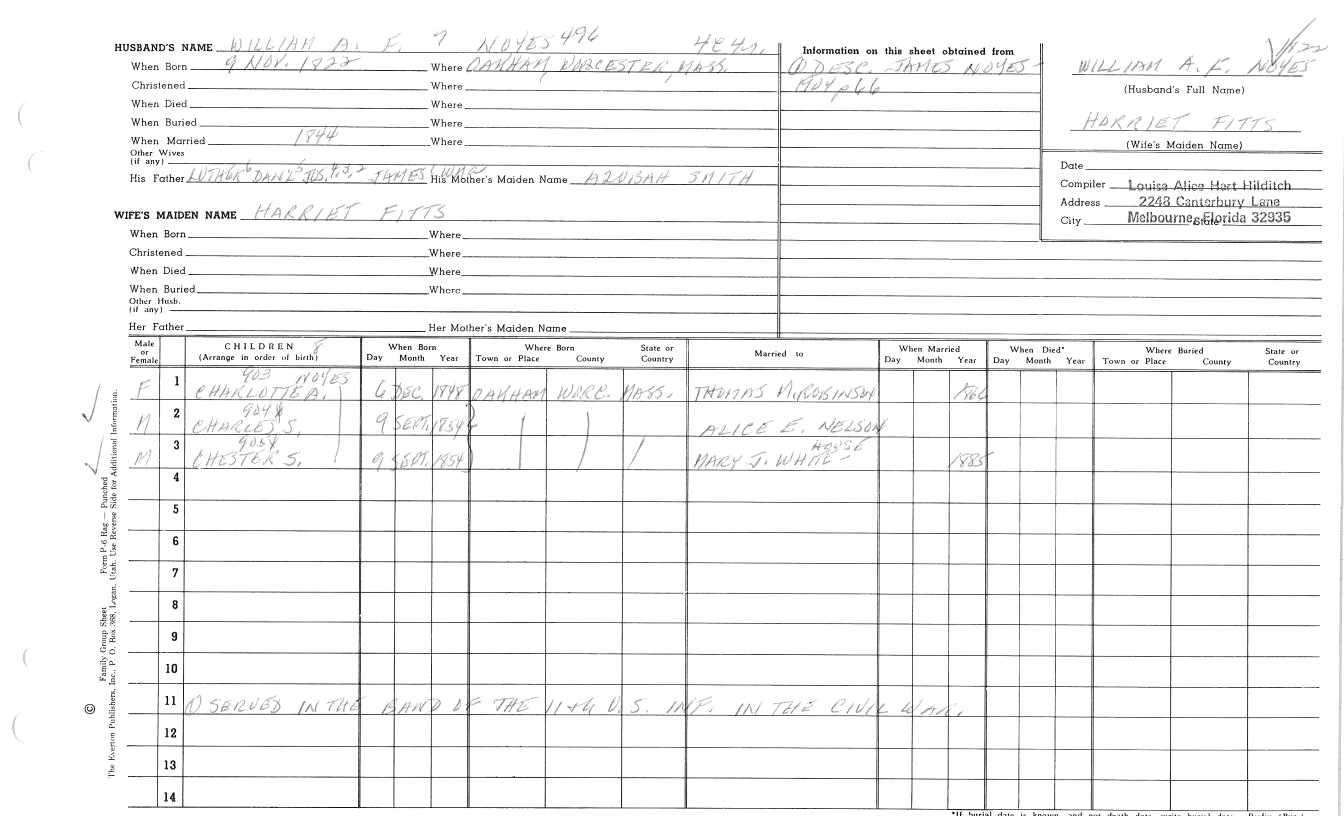 HUSBAND'S NAME WILLIAM A. F. 7 NOYES 496
When Born 9 NOV. 1822 Where OAKHAM, WORCESTER, MASS.
Christened Where
When Died Where
When Buried Where
When Married 1844 Where
Other Wives
(if any)
His Father LUTHER 6 DAN'L 5 JAS. 4, 3, 2 JAMES His Mother's Maiden Name AZUBAH SMITH
WIFE'S MAIDEN NAME HARRIET FITTS
When Born Where
Christened Where
When Died Where
When Buried Where
Other Husb.
(if any)
Her Father Her Mother's Maiden Name
Information on this sheet obtained from
① DESC. JAMES NOYES -
p 66
1122
WILLIAM A. F. NOYES
(Husband's Full Name)
HARRIET FITTS
(Wife's Maiden Name)
Date
Compiler Louisa Alice Hart Hilditch
Address 2248 Canterbury Lane
City Melbourne, Florida 32935
State
Male or Female CHILDREN 8 (Arrange in order of birth) When Born Day Month Year Where Born Town or Place County State or Country Married to When Married Day Month Year When Died* Day Month Year Where Buried Town or Place County State or Country
903 NOYES
F 1 CHARLOTTE A. 6 DEC. 1848 OAKHAM WORC. MASS. THOMAS M. ROBINSON
904
M 2 CHARLES S. 9 SEPT. 1854 ALICE E. NELSON
905
M 3 CHESTER S. 9 SEPT. 1854 MARY J. WHITE - 1885
4
5
6
7
8
9
10
11 ① SERVED IN THE BAND OF THE 11th U.S. INF. IN THE CIVIL WAR.
12
13
14
© Family Group Sheet Form P-6 Rag — Punched
The Everton Publishers, Inc., P. O. Box 368, Logan, Utah. Use Reverse Side for Additional Information.